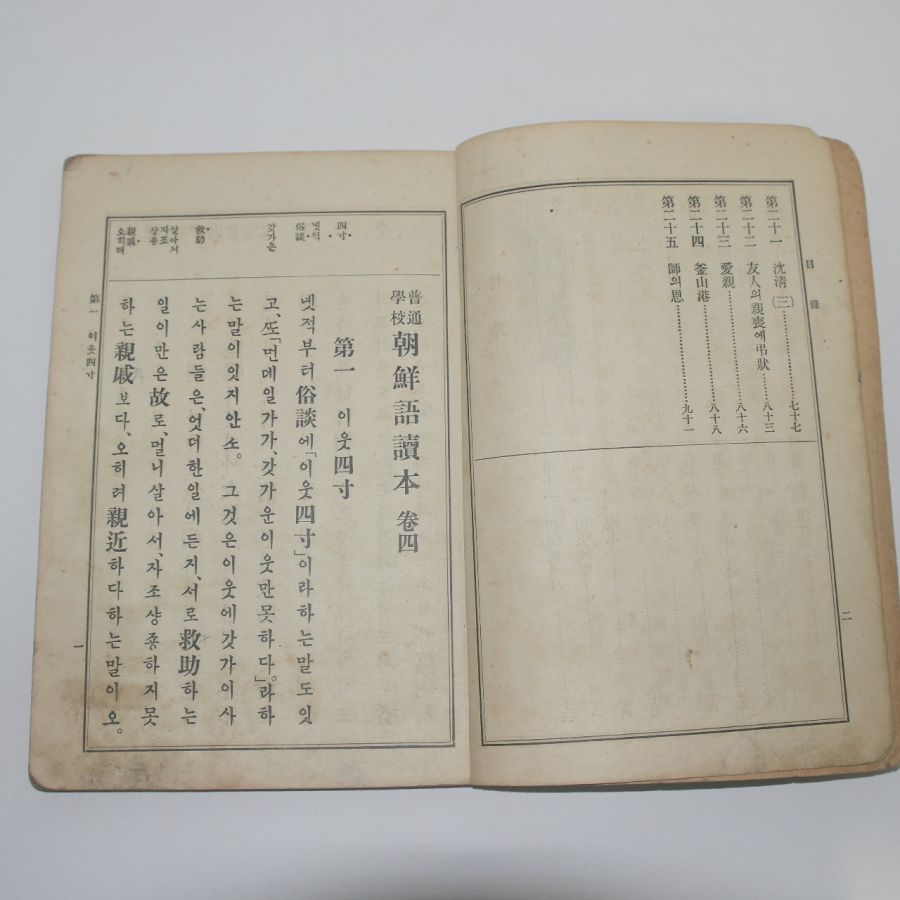 目錄
第二十一 沈淸(三)………七十七
第二十二 友人의親喪에弔狀………八十三
第二十三 愛親………八十六
第二十四 釜山港………八十八
第二十五 師의恩………九十一
二
普通學校 朝鮮語讀本 卷四
第一 이웃四寸
넷적부터俗談에「이웃四寸」이라하는말도잇
고、ᄯᅩ「먼데일가가、갓가운이웃만못하다。」라하
는말이잇지안소。그것은이웃에갓가이사
는사람들은、엇더한일에든지、서로救助하는
일이만은故로、멀니살아서、자조샹죵하지못
하는親戚보다、오히려親近하다하는말이오。
四寸
넷적
俗談
갓가운
救助
살아서
자조
샹죵
親戚
오히려
第一 이웃四寸
一